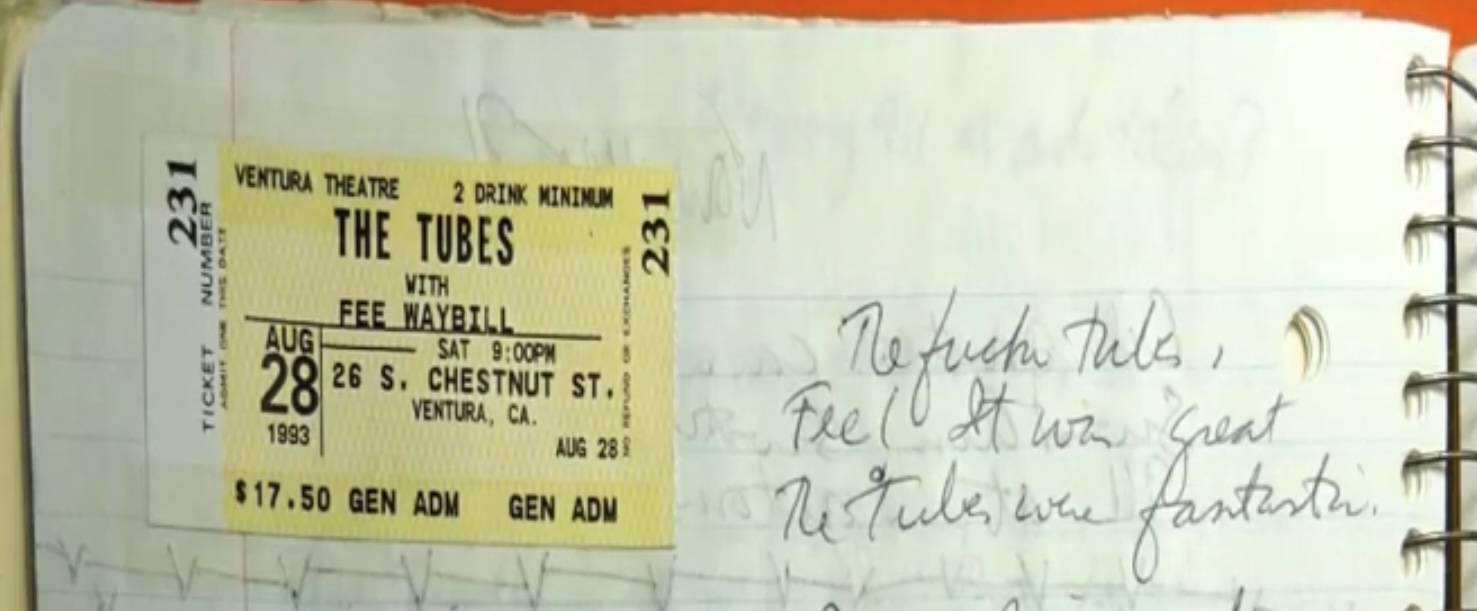 231
TICKET NUMBER
ADMIT ONE THIS DATE
VENTURA THEATRE 2 DRINK MINIMUM
THE TUBES
WITH
FEE WAYBILL
AUG
28
1993
SAT 9:00PM
26 S. CHESTNUT ST.
VENTURA, CA.
AUG 28
$17.50 GEN ADM GEN ADM
231
NO REFUND OR EXCHANGES
The fuckn Tubes,
Fee! It was great
The Tubes were fantastic.